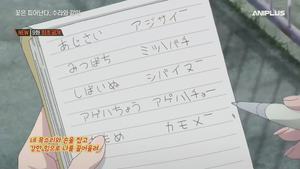 꽃은 피어난다, 수라와 같이
ANIPLUS
NEW 9화 최초 공개
あじさい アジサイー
みつばち ミツバチ
しばいぬ シバイヌー
アゲハちょう アゲハチョー
もめ カモメー
내 목소리와 손을 잡고
강한 힘으로 나를 끌어올려